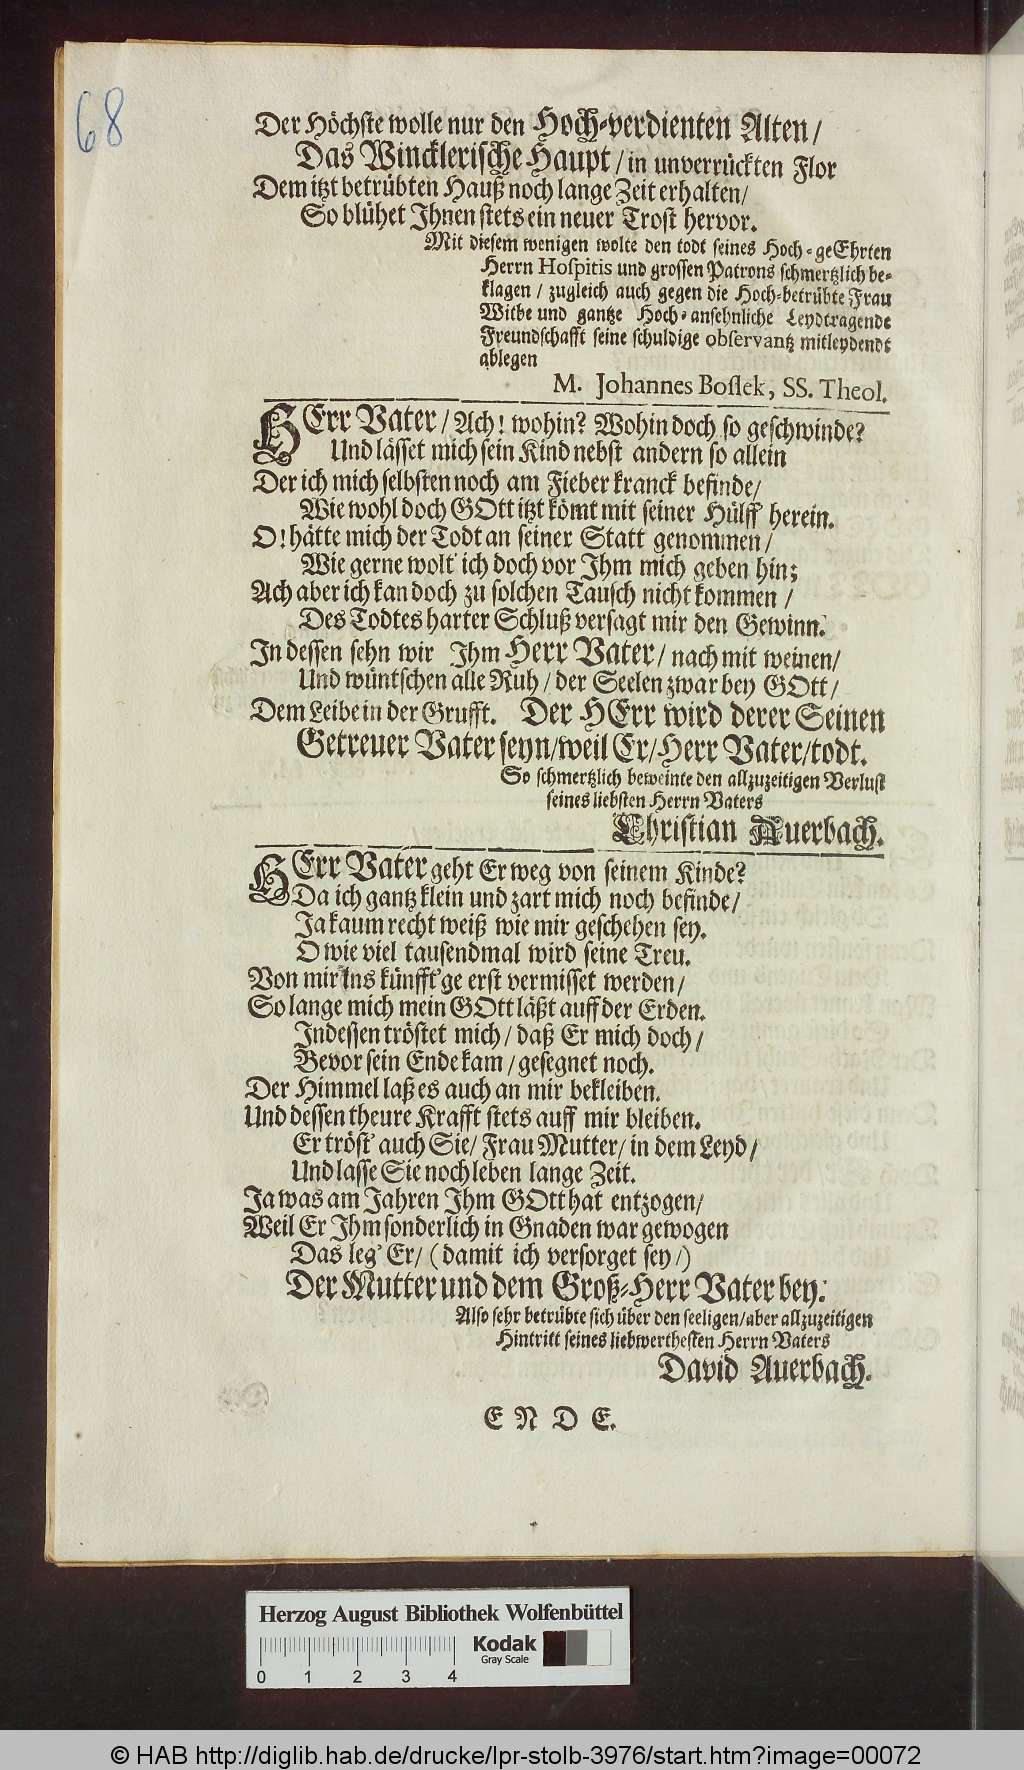 68
Der Höchste wolle nur den Hoch-verdienten Alten/
Das Wincklerische Haupt/ in unverrückten Flor
Dem itzt betrübten Hauß noch lange Zeit erhalten/
So blühet Ihnen stets ein neuer Trost hervor.
Mit diesem wenigen wolte den todt seines Hoch-geEhrten
Herrn Hospitis und grossen Patrons schmertzlich be-
klagen/ zugleich auch gegen die Hoch-betrübte Frau
Witbe und gantze Hoch-ansehnliche Leydtragende
Freundschafft seine schuldige observantz mitleydendt
ablegen
M. Johannes Boslek, SS. Theol.
HErr Vater/ Ach! wohin? Wohin doch so geschwinde?
Und lässet mich sein Kind nebst andern so allein
Der ich mich selbsten noch am Fieber kranck befinde/
Wie wohl doch GOtt itzt kömt mit seiner Hülff herein.
O! hätte mich der Todt an seiner Statt genommen/
Wie gerne wolt' ich doch vor Ihm mich geben hin;
Ach aber ich kan doch zu solchen Tausch nicht kommen/
Des Todtes harter Schluß versagt mir den Gewinn.
In dessen sehn wir Ihm Herr Vater/ nach mit weinen/
Und wüntschen alle Ruh/ der Seelen zwar bey GOtt/
Dem Leibe in der Grufft. Der HErr wird derer Seinen
Getreuer Vater seyn/ weil Er/ Herr Vater/ todt.
So schmertzlich beweinte den allzuzeitigen Verlust
seines liebsten Herrn Vaters
Christian Auerbach.
HErr Vater geht Er weg von seinem Kinde?
Da ich gantz klein und zart mich noch befinde/
Ja kaum recht weiß wie mir geschehen sey.
O wie viel tausendmal wird seine Treu.
Von mir ins künfft'ge erst vermisset werden/
So lange mich mein GOtt läßt auff der Erden.
Indessen tröstet mich/ daß Er mich doch/
Bevor sein Ende kam/ gesegnet noch.
Der Himmel laß es auch an mir bekleiben.
Und dessen theure Krafft stets auff mir bleiben.
Er tröst' auch Sie/ Frau Mutter/ in dem Leyd/
Und lasse Sie noch leben lange Zeit.
Ja was am Jahren Ihm GOtt hat entzogen/
Weil Er Ihm sonderlich in Gnaden war gewogen
Das leg' Er/ (damit ich versorget sey/)
Der Mutter und dem Groß-Herr Vater bey.
Also sehr betrübte sich über den seeligen/ aber allzuzeitigen
Hintritt seines liebwerthesten Herrn Vaters
David Auerbach.
E N D E.
Herzog August Bibliothek Wolfenbüttel
Kodak
Gray Scale
0 1 2 3 4
© HAB http://diglib.hab.de/drucke/lpr-stolb-3976/start.htm?image=00072